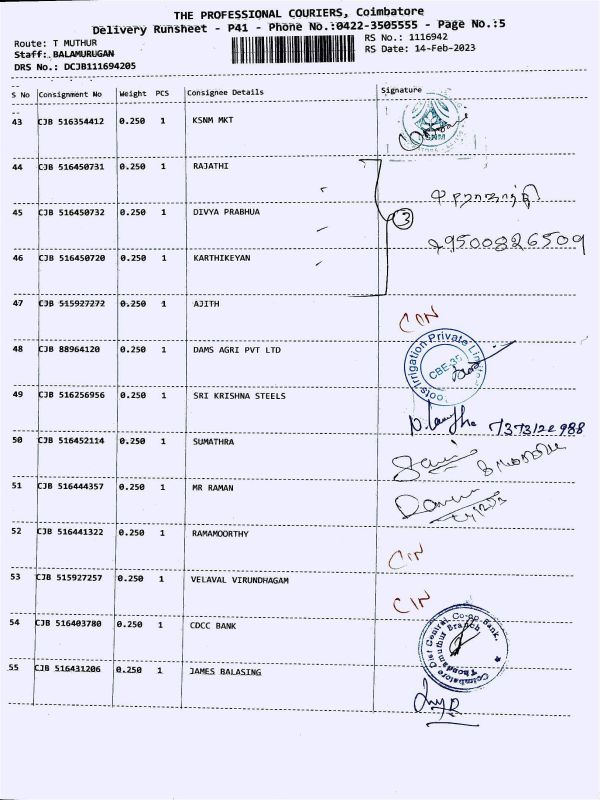 THE PROFESSIONAL COURIERS, Coimbatore
Delivery Runsheet - P41 - Phone No.:0422-3505555 - Page No.:5
Route: T MUTHUR
RS No.: 1116942
Staff: BALAMURUGAN
RS Date: 14-Feb-2023
DRS No.: DCJB111694205
S No Consignment No Weight PCS Consignee Details Signature
43 CJB 516354412 0.250 1 KSNM MKT
44 CJB 516450731 0.250 1 RAJATHI
45 CJB 516450732 0.250 1 DIVYA PRABHUA 3
9500826509
46 CJB 516450720 0.250 1 KARTHIKEYAN
47 CJB 515927272 0.250 1 AJITH CIN
48 CJB 88964120 0.250 1 DAMS AGRI PVT LTD Irrigation Private CBE-35
49 CJB 516256956 0.250 1 SRI KRISHNA STEELS 7373122988
50 CJB 516452114 0.250 1 SUMATHRA
51 CJB 516444357 0.250 1 MR RAMAN
52 CJB 516441322 0.250 1 RAMAMOORTHY CIN
53 CJB 515927257 0.250 1 VELAVAL VIRUNDHAGAM CIN
54 CJB 516403780 0.250 1 CDCC BANK Coimbatore Dist Central Co-op Bank, Thondamuthur Branch
55 CJB 516431206 0.250 1 JAMES BALASING